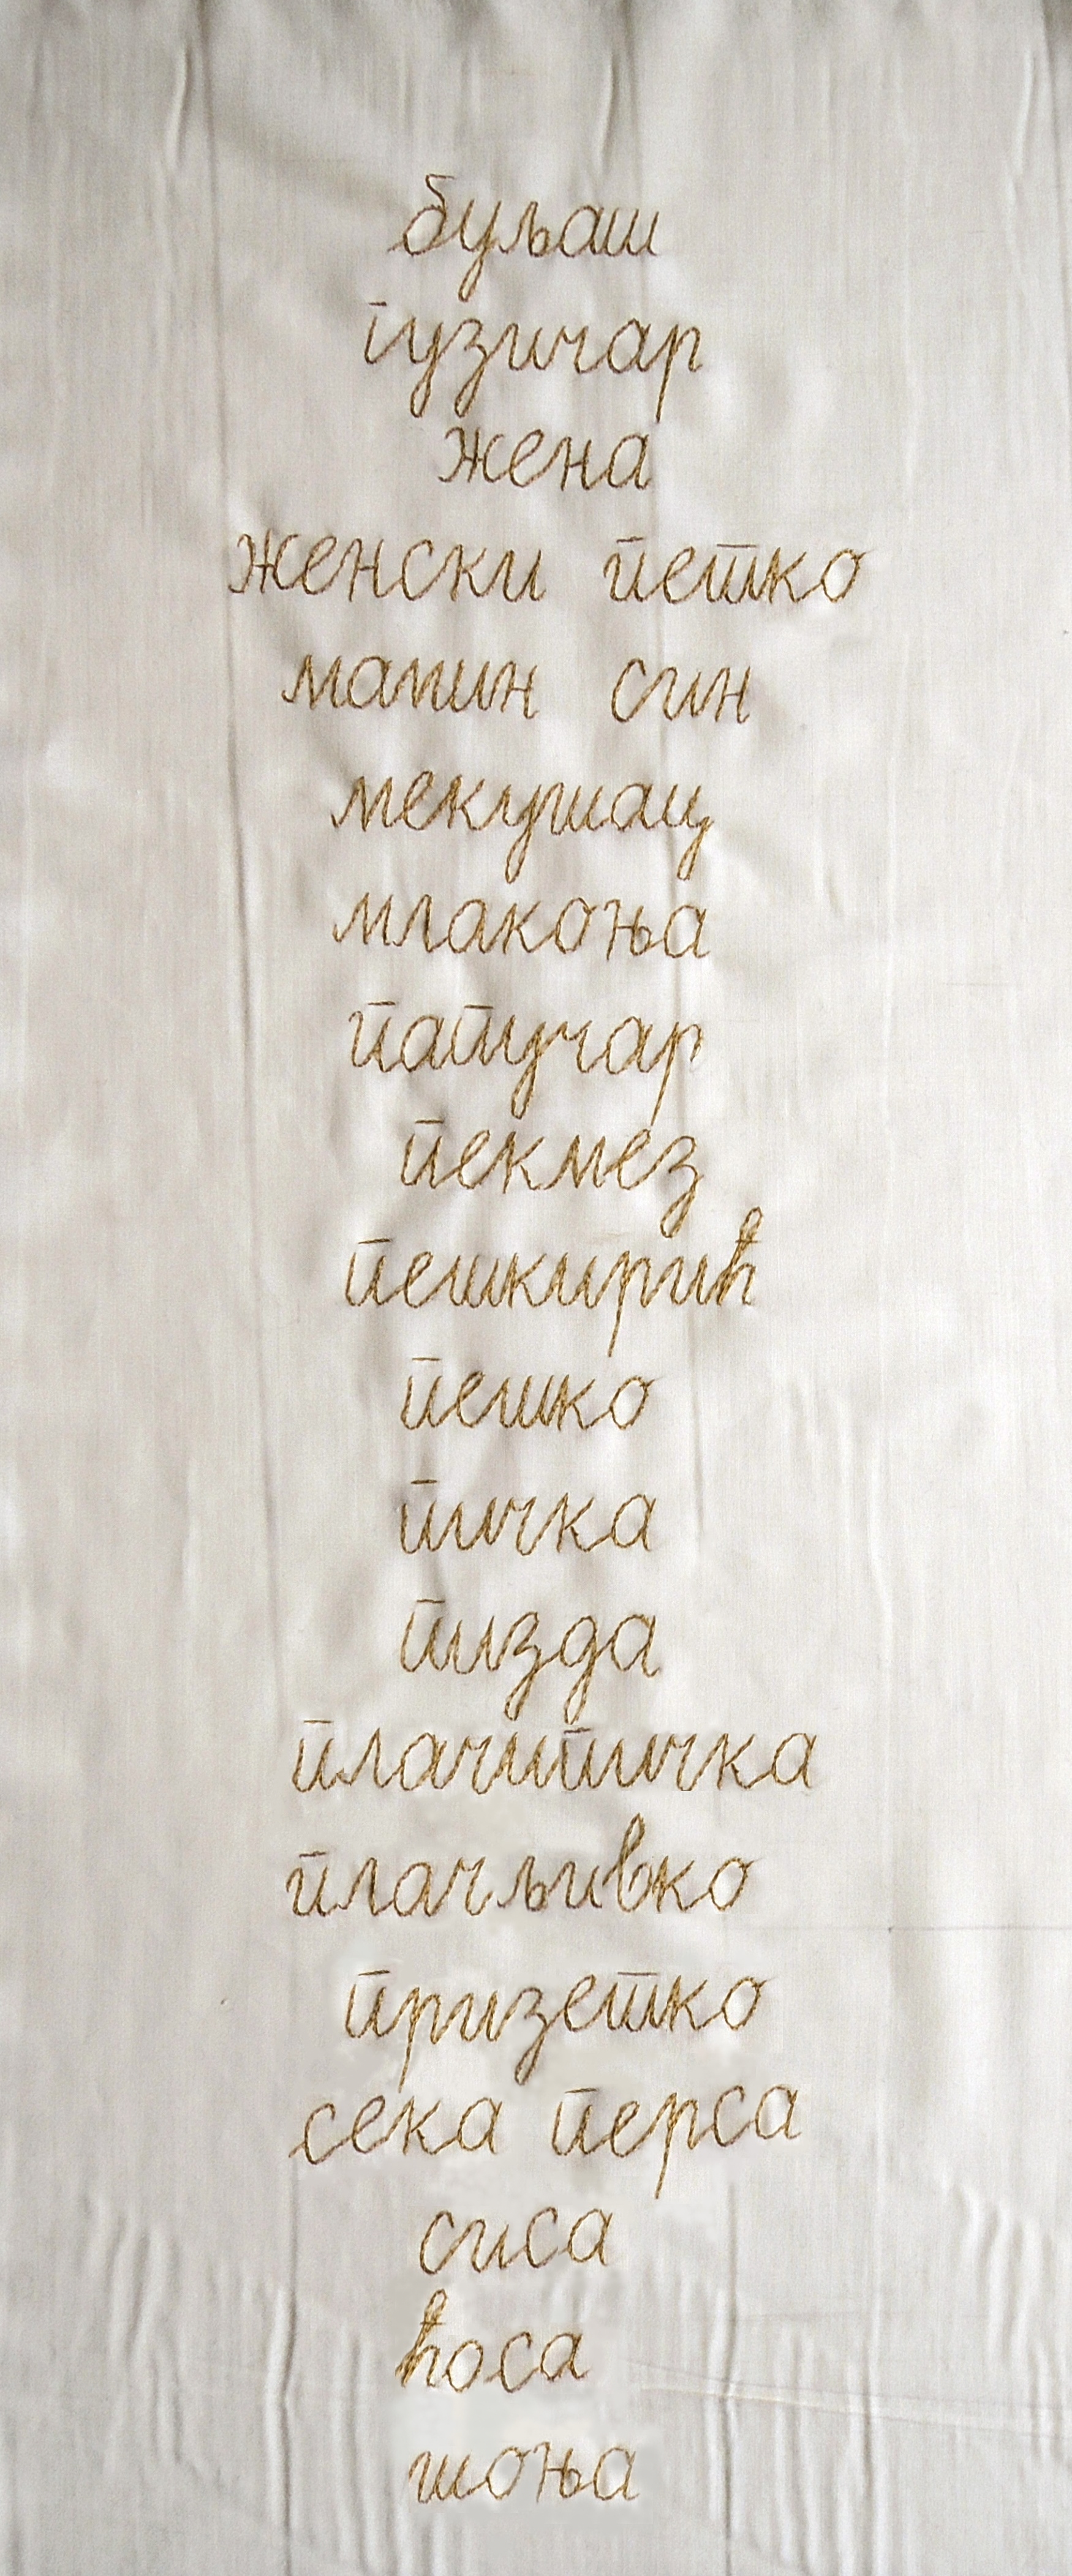 буљаш
гузичар
жена
женски петко
мамин син
мекушац
млакоња
папучар
пекмез
пешкирић
пешко
пичка
пизда
плачипичка
плачљивко
призетко
сека перса
сиса
ћоса
шоња